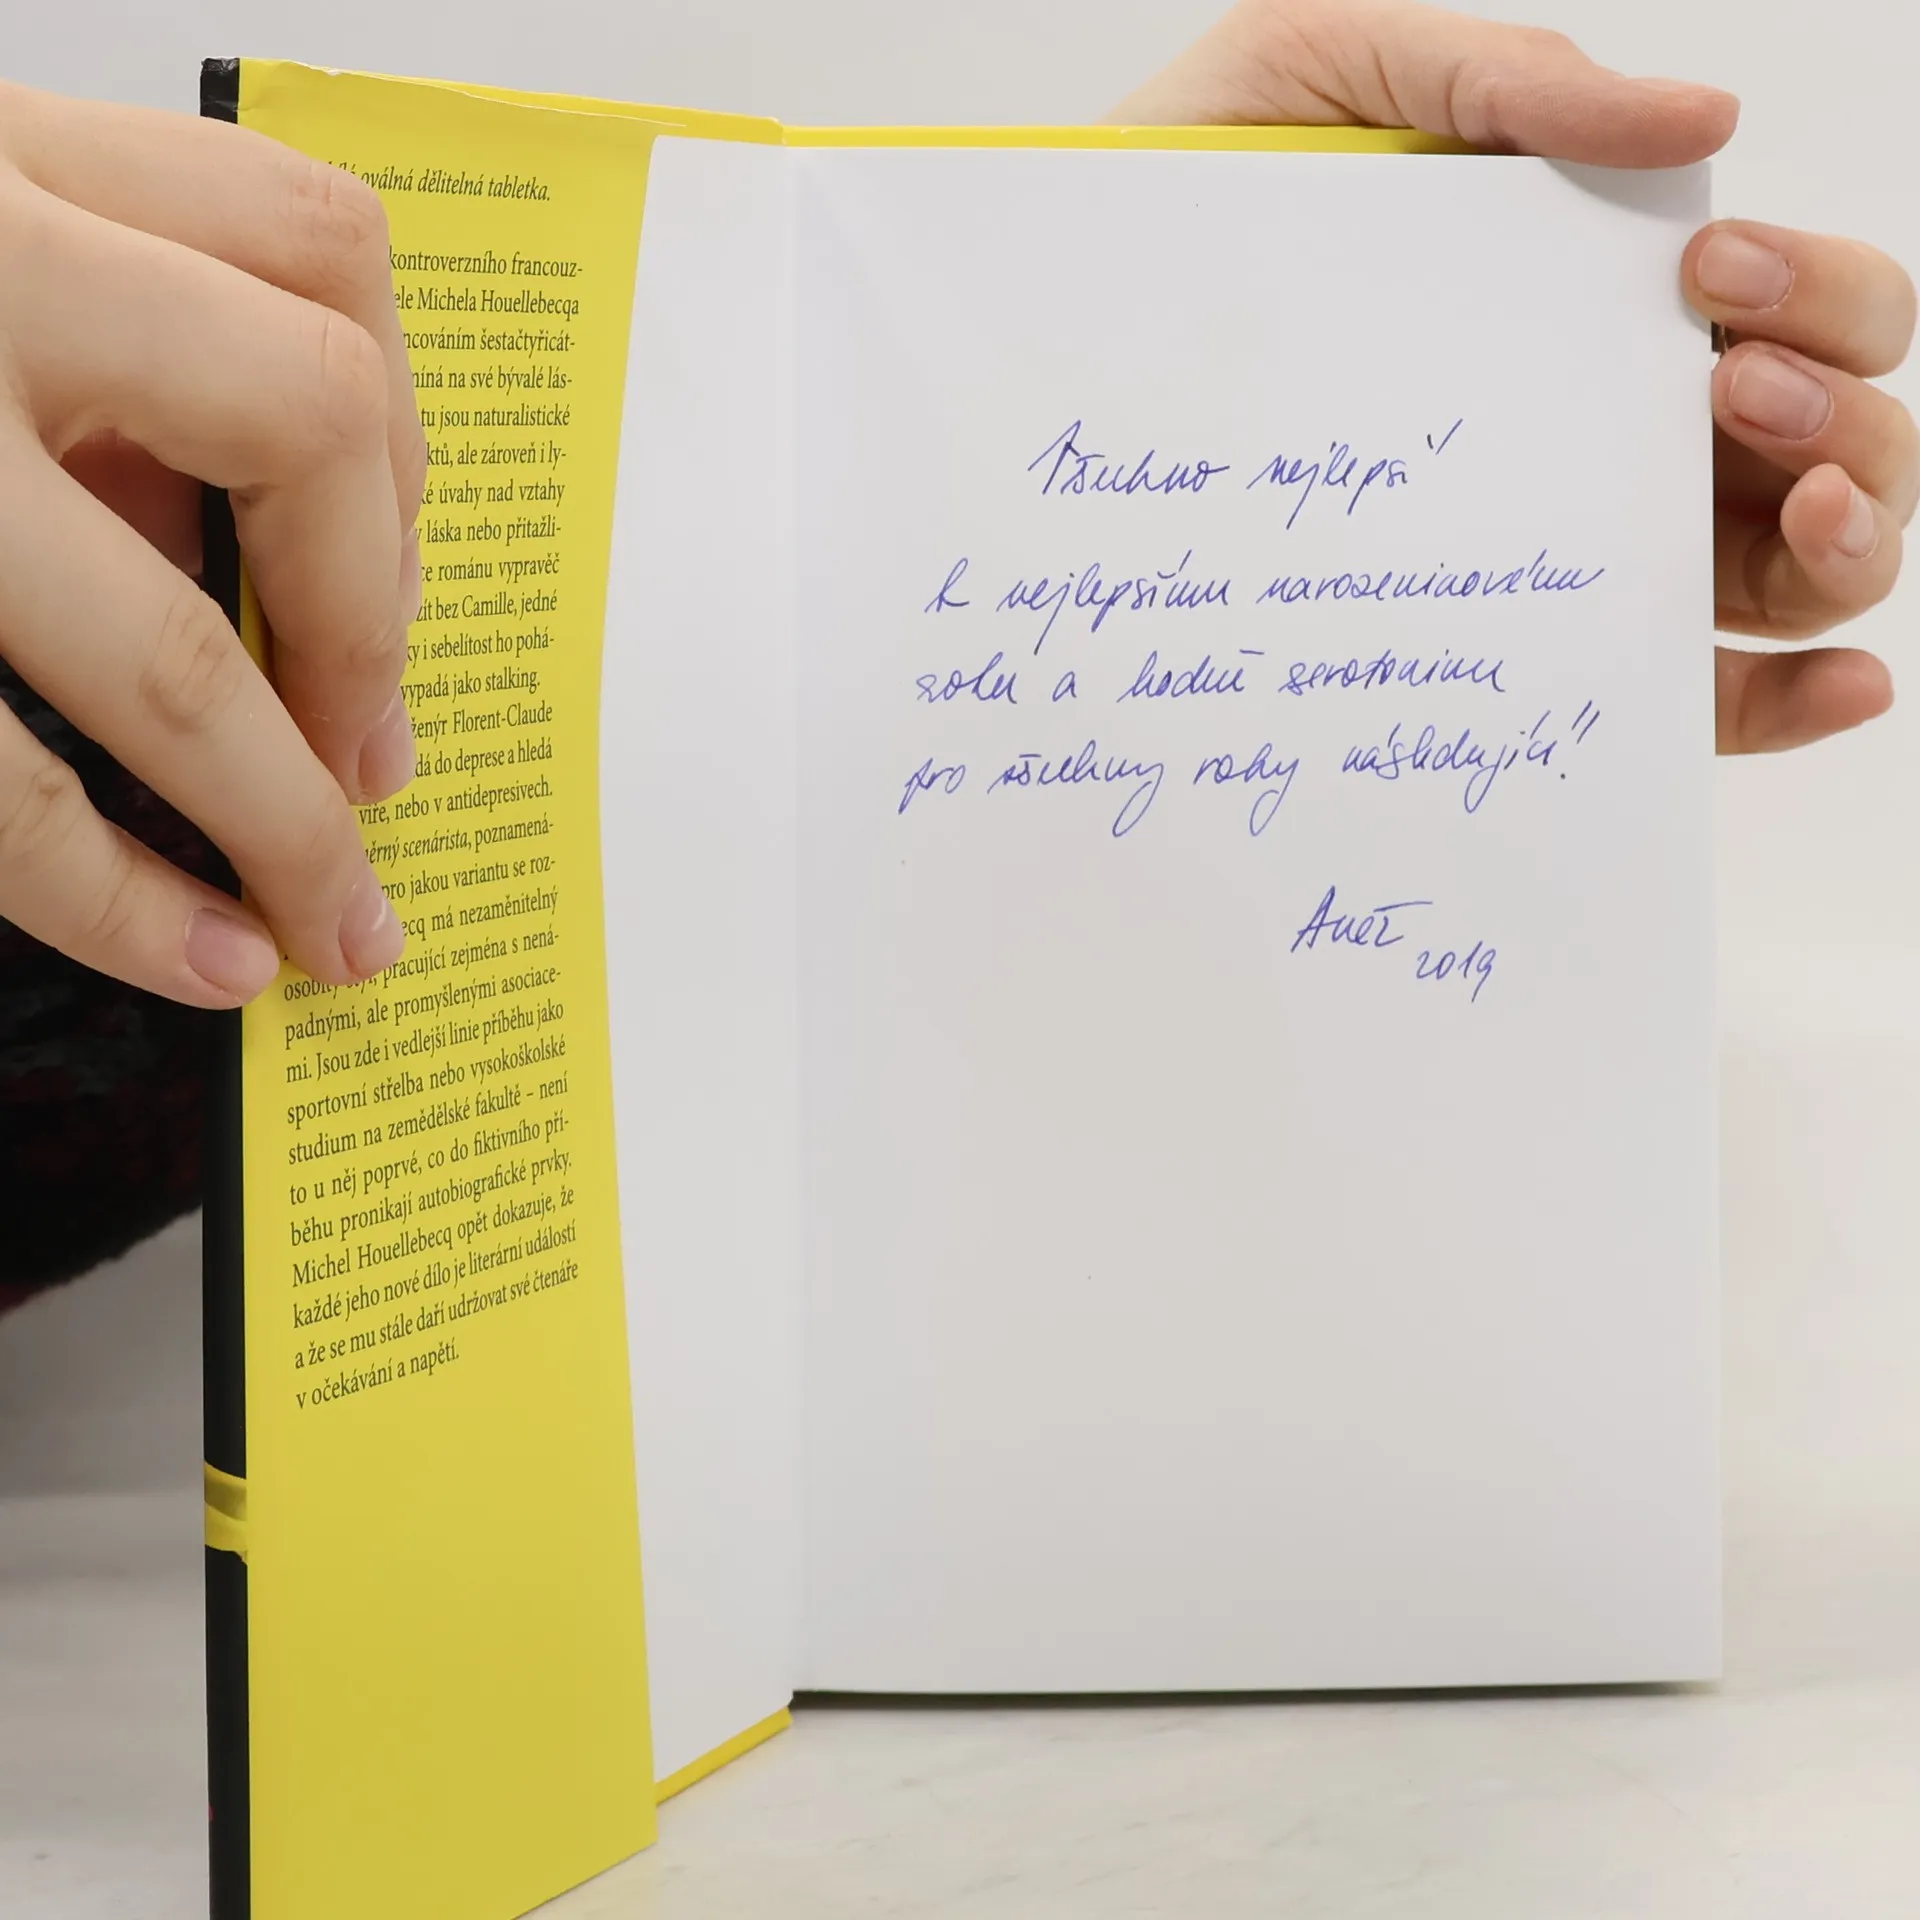 oválná dělitelná tabletka.
kontroverzního francouz-
Michela Houellebecqa
šestačtyřicát-
na své bývalé lás-
tu jsou naturalistické
ale zároveň i ly-
úvahy nad vztahy
láska nebo přitažli-
románu vypravěč
bez Camille, jedné
i sebelítost ho pohá-
vypadá jako stalking.
Florent-Claude
do deprese a hledá
víře, nebo v antidepresivech.
scenárista, poznamená-
pro jakou variantu se roz-
má nezaměnitelný
osobitý styl, pracující zejména s nená-
padnými, ale promyšlenými asociace-
mi. Jsou zde i vedlejší linie příběhu jako
sportovní střelba nebo vysokoškolské
studium na zemědělské fakultě – není
to u něj poprvé, co do fiktivního pří-
běhu pronikají autobiografické prvky.
Michel Houellebecq opět dokazuje, že
každé jeho nové dílo je literární událostí
a že se mu stále daří udržovat své čtenáře
v očekávání a napětí.
Všechno nejlepší
k nejlepšímu narozeninovému
roku a hodně serotoninu
pro všechny roky následující!
Anež
2019